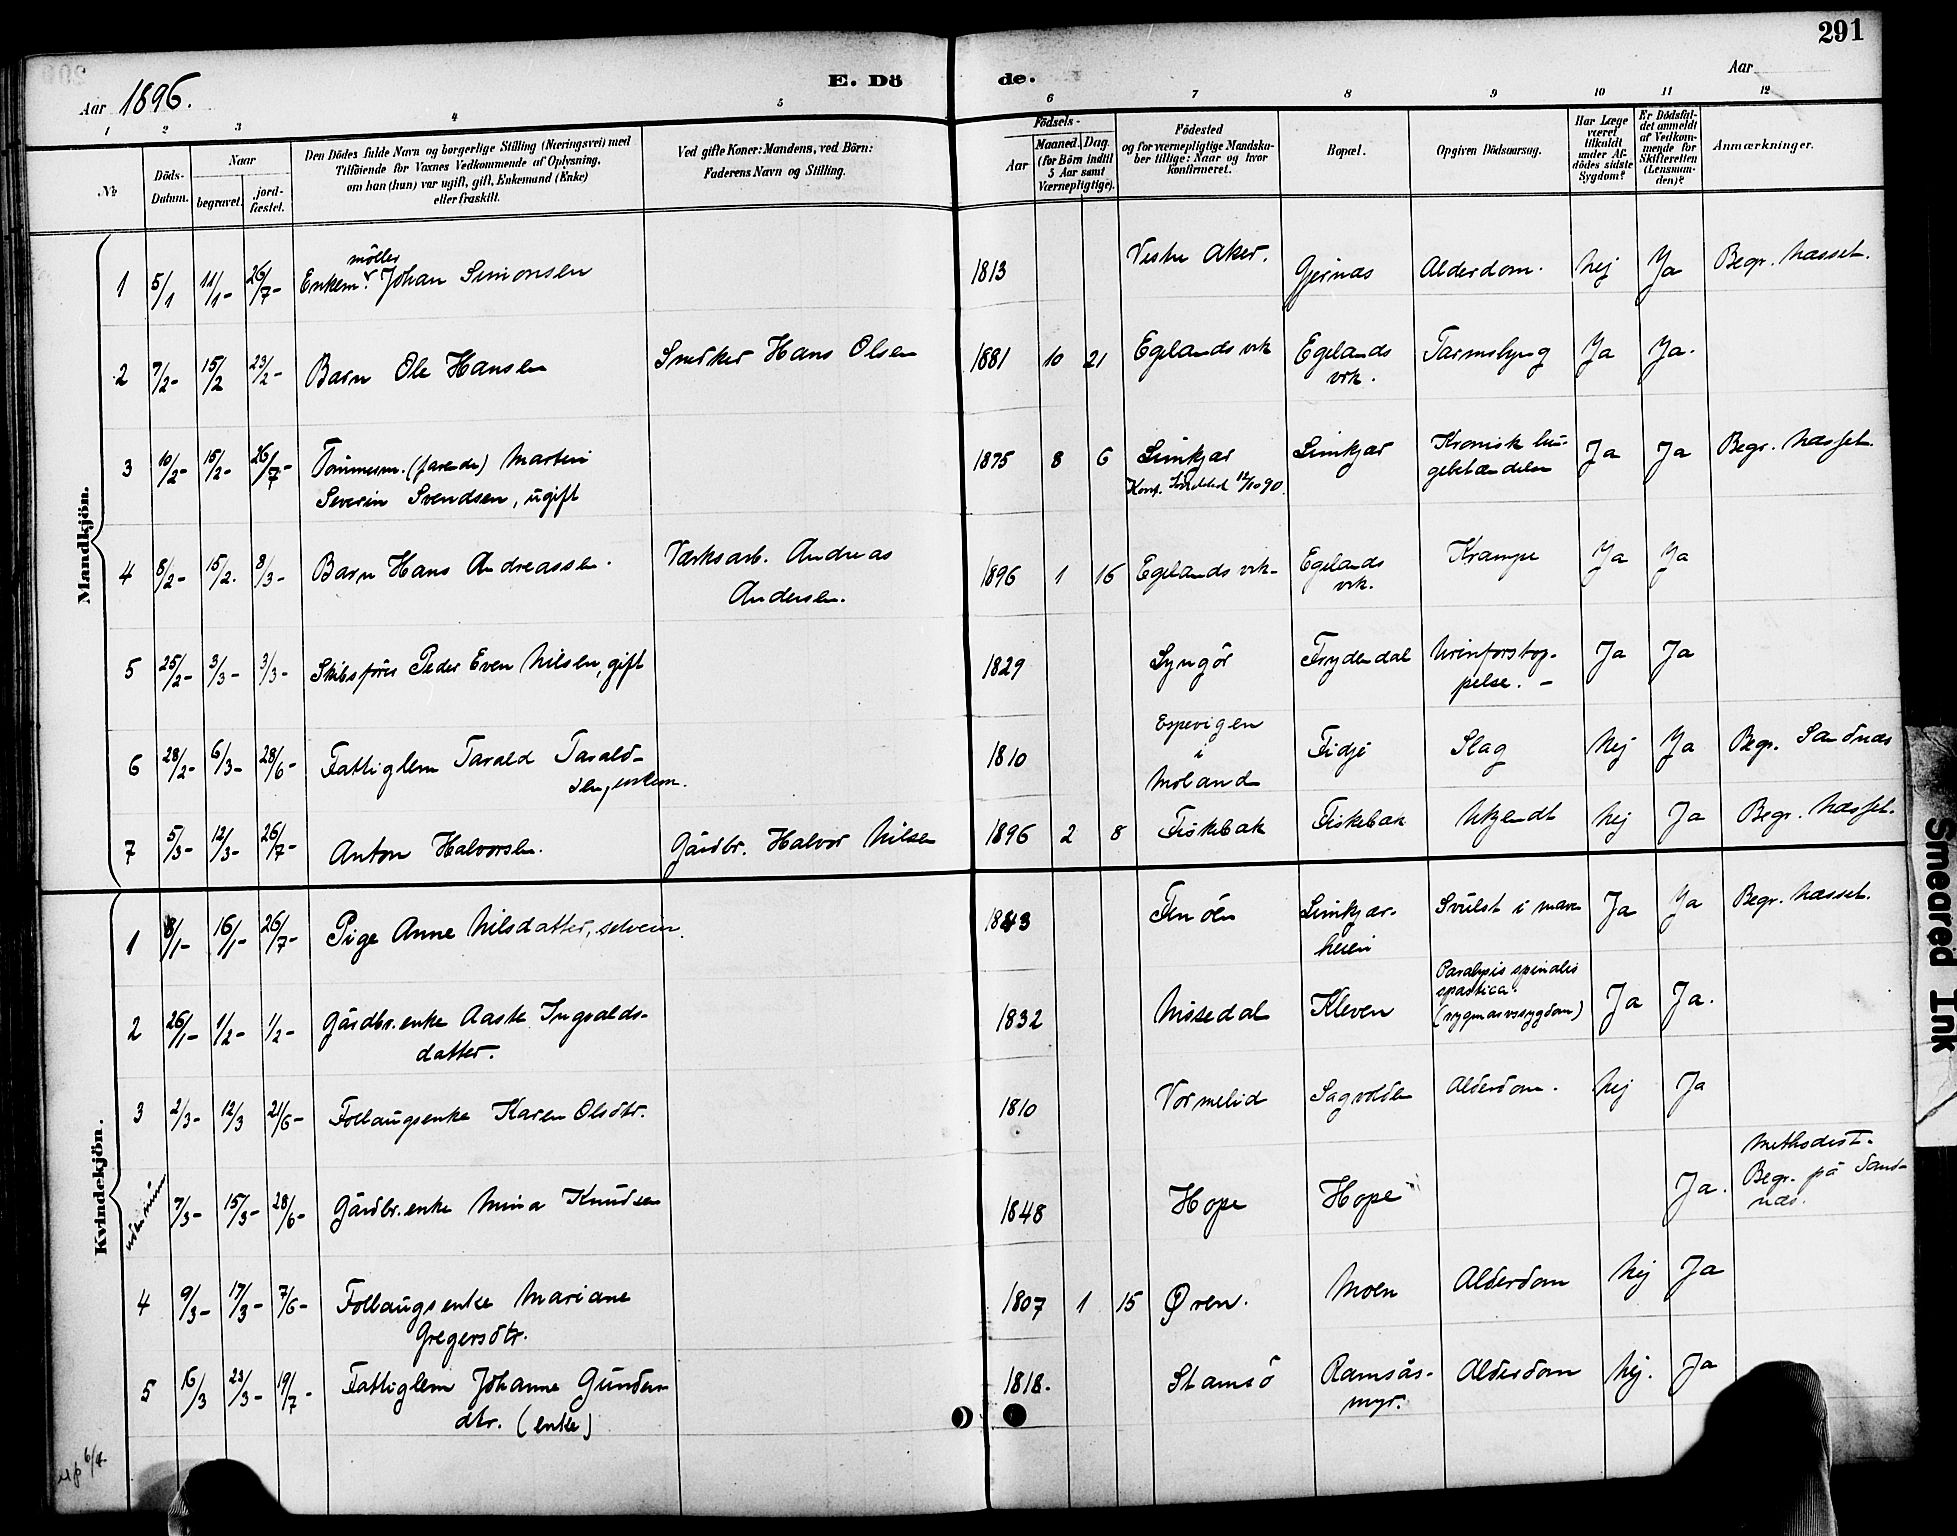 291
Aar 1896.
E. Dö de.
Aar
1 2 3 4 5 6 7 8 9 10 11 12
No
Döds-Datum.
Naar
begravet.
jord-fæstet.
Den Dödes fulde Navn og borgerlige Stilling (Næringsvei) med
Tilföiende for Voxnes Vedkommende af Oplysning,
om han (hun) var ugift, gift, Enkemand (Enke)
eller fraskilt.
Ved gifte Koner: Mandens, ved Börn:
Faderens Navn og Stilling.
Födsels-
Aar
Maaned. Dag.
(for Börn indtil
5 Aar samt
Værnepligtige).
Födested
og for værnepligtige Mandska-
ber tillige: Naar og hvor
konfirmeret.
Bopæl.
Opgiven Dödsaarsag.
Har Læge
været
tilkaldt
under Af-
dödes sidste
Sygdom?
Er Dödsfal-
det anmeldt
af Vedkom-
mende for
Skifteretten
(Lensman-
den)?
Anmærkninger.
Mandkjön.
1 5/1 11/1- 26/7- Enkem. møller Johan Simonsen 1813 Vestre Aker. Gjernæs Alderdom. Nej Ja Begr. Næsset.
2 7/2- 15/2 23/2- Barn Ole Hansen Snedker Hans Olsen 1881 10 21 Egelands vrk Egelands Tarmslyng Ja Ja.
vrk.
3 10/2- 15/2- 26/7- Tømmerm. (farende) Martin 1875 8 6 Limkjær Limkjær Kronisk lun- Ja Ja Begr. Næsset.
Severin Svendsen, ugift Konf. Søndeled 12/10 90. gebetændelse
4 8/2- 15/2. 8/3- Barn Hans Andreassen. Værksarb. Andreas 1896 1 16 Egelands vrk- Egelands Krampe Ja Ja
Andersen. vrk.
5 25/2- 3/3- 3/3- Skibsfører Peder Even Nilsen, gift 1829 Lyngör Frydendal Urinforstop- Ja Ja
pelse. -
6 28/2- 6/3- 28/6- Fattiglem Tarald Tarald- 1810 Espevigen Fidje Slag Nej Ja Begr. Sandnæs
sen, enkem. i
Moland
7 5/3- 12/3- 26/7- Anton Halvorsen. Gårdbr. Halvor Nilsen 1896 2 8 Fiskebæk Fiskebæk Ukjendt Nej Ja Begr. Næsset.
Kvindekjön.
1 8/1- 16/1- 26/7- Pige Anne Nilsdatter, selveier. 1843 Finöen Limkjær- Svulst i mave Ja Ja Begr. Næsset.
heien
2 26/1- 1/2- 1/2- Gårdbr.enke Aaste Ingvalds- 1832 Nissedal Kleven Paralysis spinalis Ja Ja.
datter. spastica.
(rygmarvssygdom)
3 2/3- 12/3 21/6- Follaugsenke Karen Olsdtr. 1810 Vormelid Sagvolden Alderdom. Nej Ja
uden num 7/3- 15/3- 28/6- Gårdbr.enke Mina Knudsen 1848 Hope Hope Ja. Methodist.
Begr. på Sand-
næs.
4 9/3- 17/3- 7/6- Follaugsenke Mariane 1807 1 15 Øren. Moen Alderdom Nej Ja
Gregersdtr.
5 16/3 23/3- 19/7- Fattiglem Johanne Gunders- 1818. Stamsö Ramsås- Alderdom Nej. Ja
dtr. (enke) myr.
6/4-
Smeared Ink